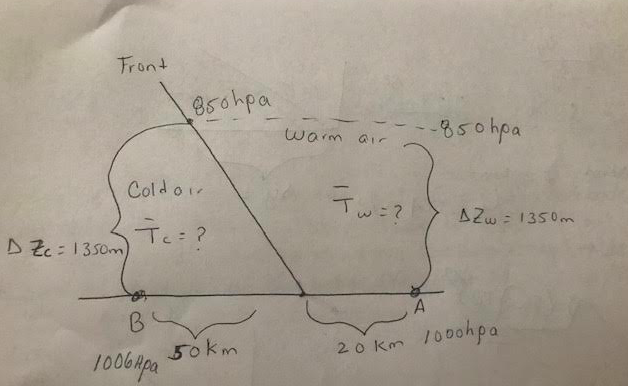 Front
850hpa
850hpa
Warm air
Cold air
T̄c = ?
T̄w = ?
ΔZc = 1350m
ΔZw = 1350m
B
A
1006Hpa
50km
20 Km
1000hpa